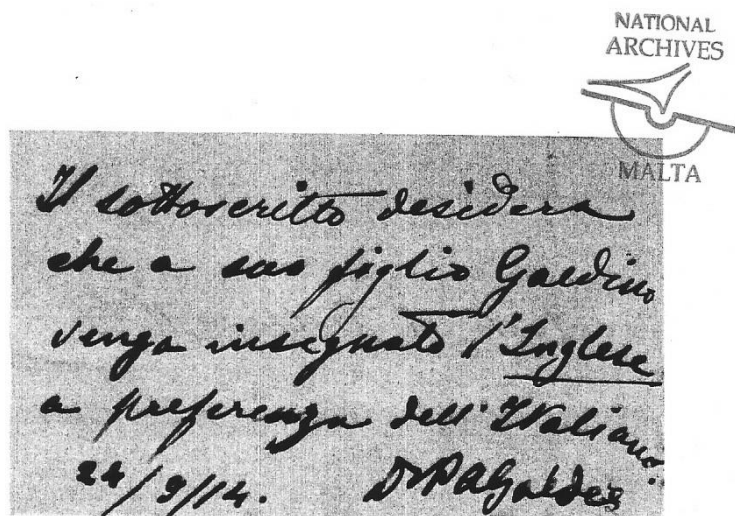 NATIONAL
ARCHIVES
MALTA
Il sottoscritto desidera
che a suo figlio
venga insegnato l'Inglese
a preferenza dell'Italiano.
24/9/14. Dr P A Galdes